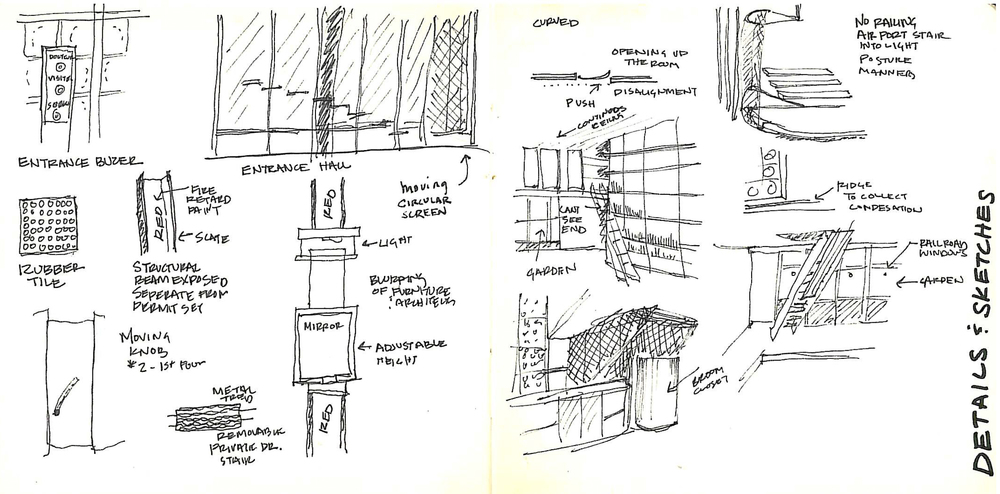 DOCTOR
VISITE
SERV
ENTRANCE BUZER
ENTRANCE HALL
MOVING
CIRCULAR
SCREEN
FIRE
RETARD
PAINT
REDS
SLATE
RUBBER
TILE
STRUCTURAL
BEAM EXPOSED
SEPERATE FROM
PERMIT SET
RED
LIGHT
BLURRING
OF FURNITURE
MIRROR
ADJUSTABLE
HEIGHT
RED
MOVING
KNOB
*2 - 1ST FLOOR
METAL
TREAD
REMOVABLE
PRIVATE DR.
STAIR
CURVED
OPENING UP
THE ROOM
DISALIGNMENT
PUSH
CONTINOUS
CEILING
CANT
SEE
END
GARDEN
BROOM
CLOSET
NO RAILING
AIRPORT STAIR
INTO LIGHT
POSTURE
MANNERS
RIDGE
TO COLLECT
CONDESATION
RAILROAD
WINDOWS
GARDEN
DETAILS & SKETCHES